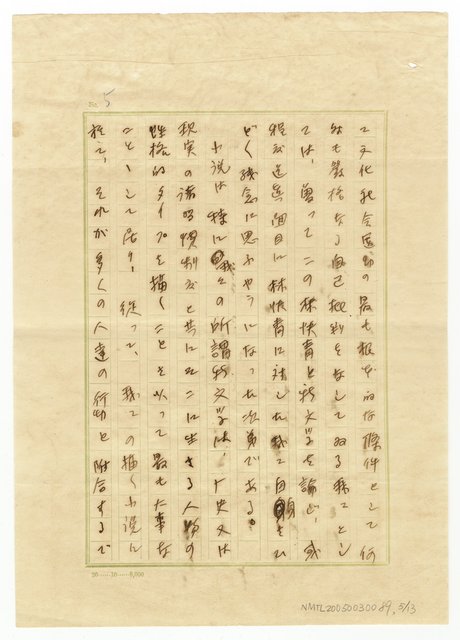 No. 5
て文化社会運動の最も根本的な條件として何
より最も厳格なる自己批判をなしてゐる我々とし
ては、曾つてこの林快青と新文学を論じ、或
程度迄真面目に林快青に対した我々自身をひ
どく残念に思ふやうになつた次第である。
小説は特に我々の所謂新文学は、歴史又は
現実の諸習慣制度と共にそこに生きる人物の
性格的タイプを描くことを以つて最も大事な
こととして居り、従つて、我々の描く小説に
於て、それが多くの人達の行動と附合するで
20.....10.....8,000
NMTL20050030089, 5/13